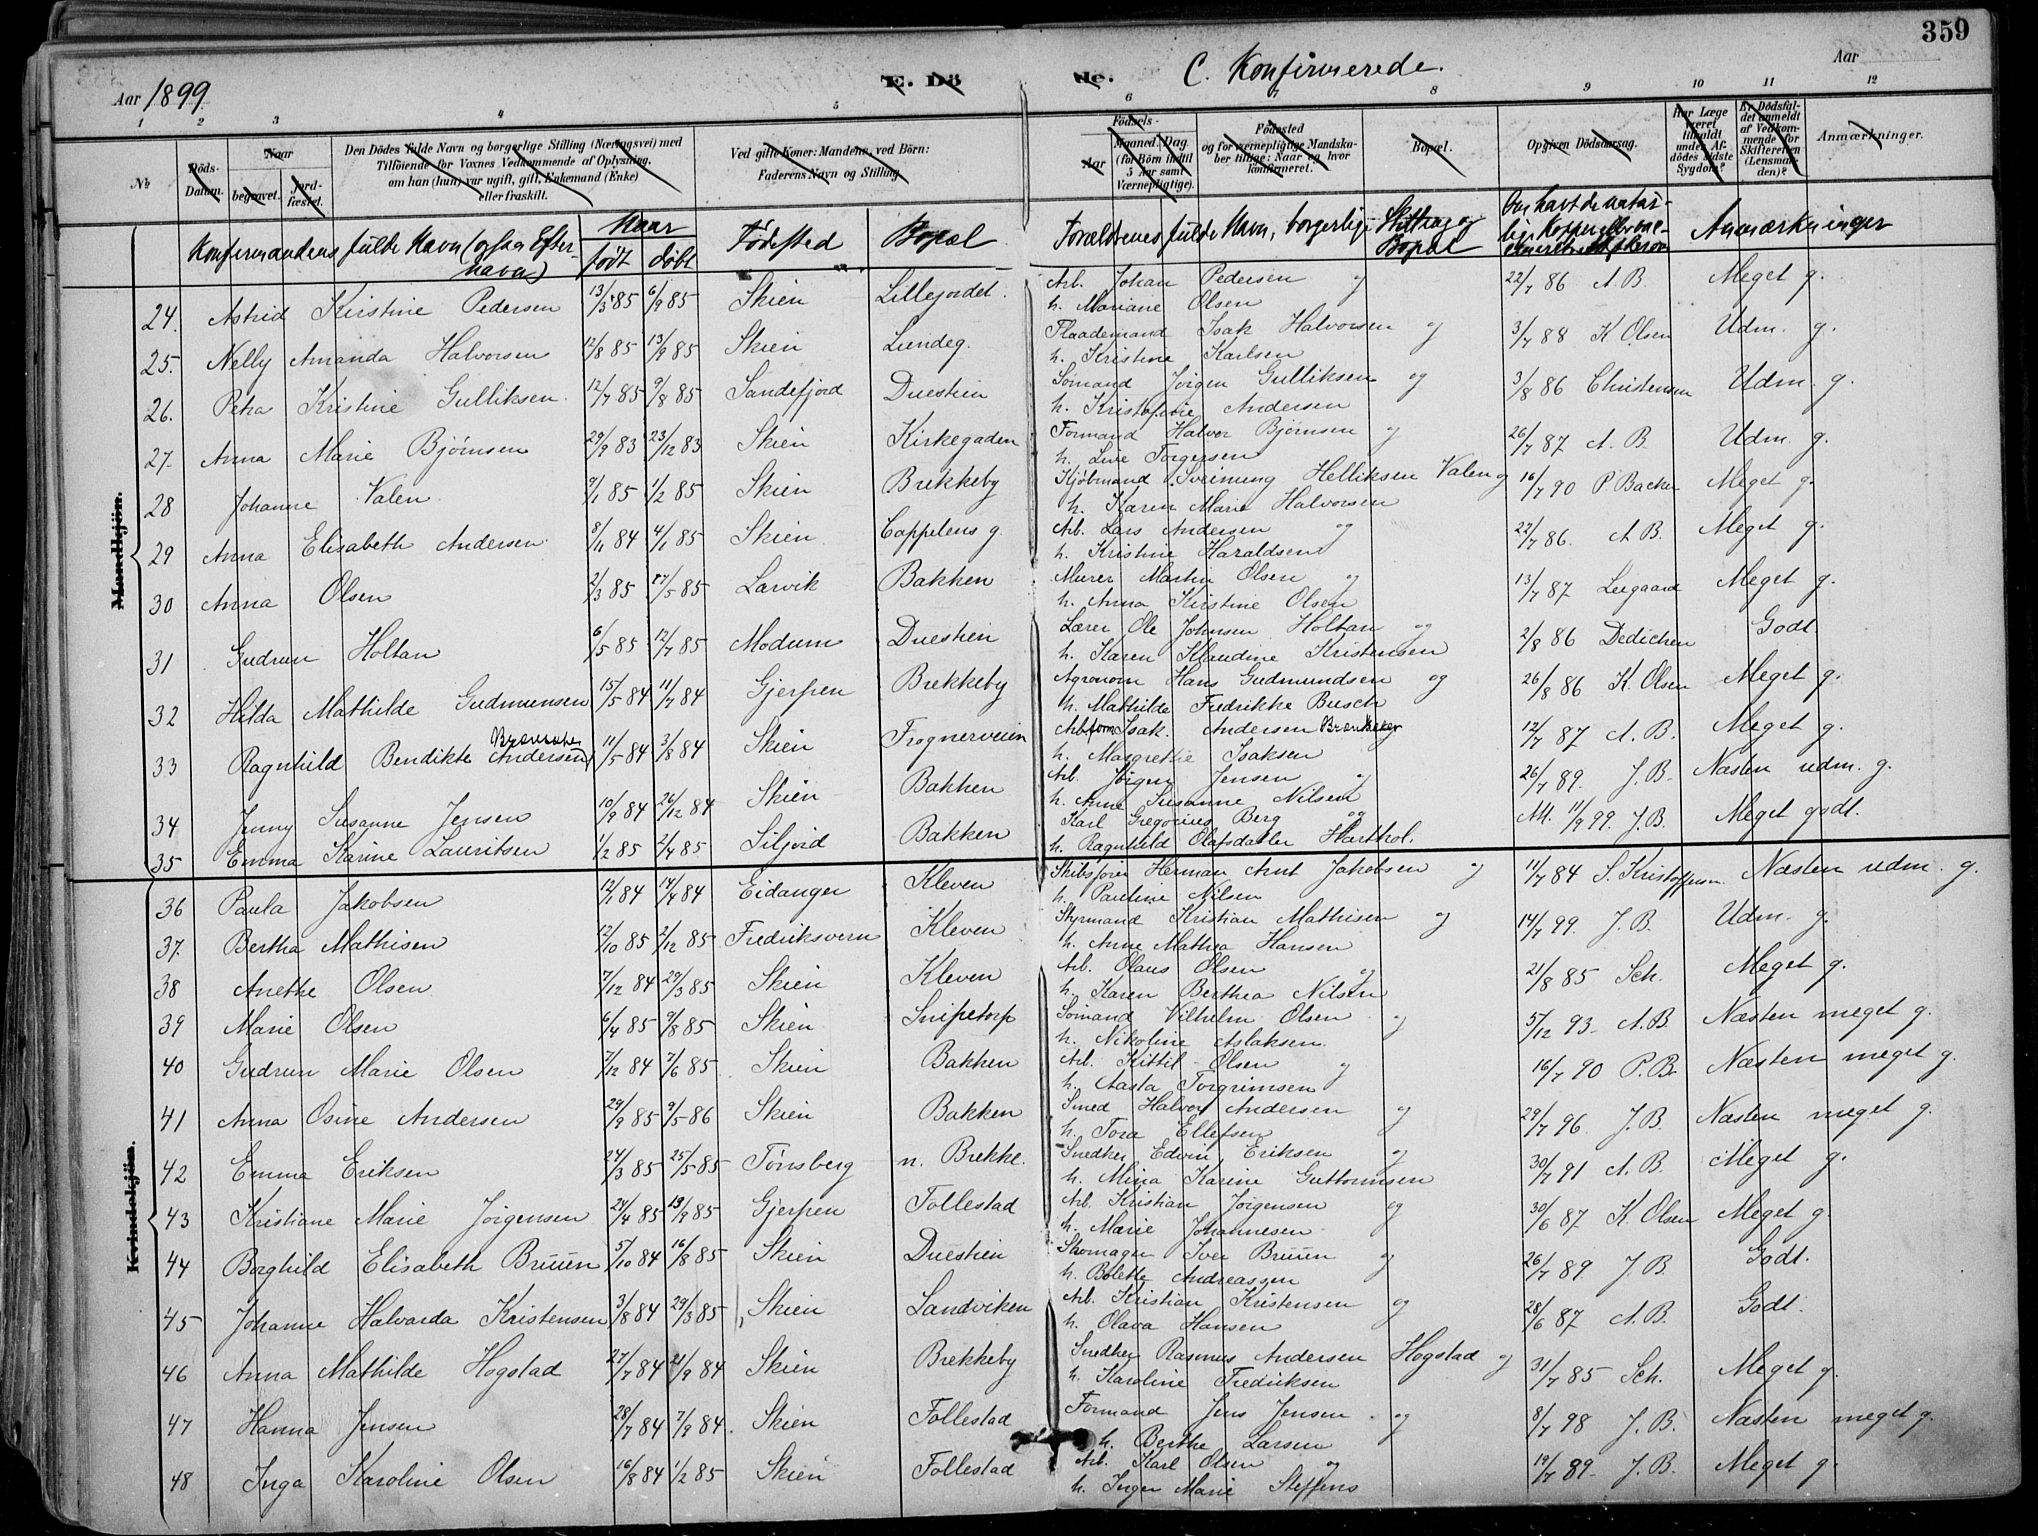 359
Aar 1899
E. Dö
de.
C. Konfirmerede.
Aar
1 2 3 4 5 6 7 8 9 10 11 12
№
Döds-Datum.
Naar
begravet.
Jord-fæstet.
Den Dödes fulde Navn og borgerlige Stilling (Næringsvei) med
Tilföiende for Voxnes Vedkommende af Oplysning,
om han (hun) var ugift, gift, Enkemand (Enke)
eller fraskilt.
Ved gifte Koner: Mandens, ved Börn:
Faderens Navn og Stilling
Födsels-
Aar
Maaned. Dag.
(for Börn indtil
5 Aar samt
Værnepligtige).
Födested
og for værnepligtige Mandska-
ber tillige: Naar og hvor
konfirmeret.
Bopæl.
Opgiven Dödsaarsag.
Har Læge
været
tilkaldt
under Af-
dödes sidste
Sygdom?
Er Dödsfal-
det anmeldt
af Vedkom-
mende for
Skifteretten
(Lensman-
den)?
Anmærkninger.
Konfirmandens fulde Navn (ogsaa Efter-
navn)
Naar
født døbt
Fødested
Bopæl
Forældrenes fulde Navn, borgerlige Stilling og
Bopæl
Anmærkninger
Mandkjön.
24. Astrid Kirstine Pedersen 13/3 85 6/9 85 Skien Lillejordet. Arb. Johan Pedersen og 22/7 86 A. B. Meget g.
h. Mariane Olsen
25. Nelly Amanda Halvorsen 12/8 85 13/9 85 Skien Lundeg. Flaademand Isak Halvorsen og 3/7 88 K Olsen Udm. g.
h. Kristine Karlsen
26. Petra Kristine Gulliksen. 12/7 85 9/8 85 Sandefjord Duestien Sømand Jørgen Gulliksen og 3/8 86 Christensen Udm. g.
h. Kristofine Andersen
27. Anna Marie Bjørnsen 29/9 83 23/12 83 Skien Kirkegaden Formand Halvor Bjørnsen og 26/7 87 A. B. Udm. g.
h. Live Torgersen
28 Johanne Valen 9/1 85 1/2 85 Skien Brekkeby Kjøbmand Sveinung Helliksen Valen og 16/7 90 P. Backer Meget g.
h. Karen Marie Halvorsen
29 Anna Elisabeth Andersen 8/11 84 4/1 85 Skien Cappelens g. Arb. Lars Andersen og 22/7 86. A B. Meget g.
h. Kristine Haraldsen
30 Anna Olsen 2/3 85 17/5 85 Larvik Bakken Murer Martin Olsen og 13/7 87 Leegaard Meget g.
h. Anna Kirstine Olsen
31 Gudrun Holtan 6/5 85 12/7 85 Modum Duestien Lærer Ole Johnsen Holtan og 2/8 86 Dedichen Godt
h. Karen Klaudine Kristensen
32 Hilda Mathilde Gudmunsen 15/5 84 11/7 84 Gjerpen Brekkeby Agronom Hans Gudmundsen og 26/8 86 K. Olsen Meget g.
h. Mathilde Fredrikke Busch
33 Ragnhild Bendikte Andersen 11/5 84 3/8 84 Skien Frognerveien Arbform. Isak Andersen og 12/7 87 A. B. Meget g.
h. Margrethe Isaksen
34 Jenny Susanne Jensen 10/9 84 26/12 84 Skien Bakken Arb. Jørgen Jensen og 26/7 89. J. B. Næsten udm. g.
h. Anne Susanne Nilsen
35 Emma Karine Lauritsen 1/2 85 2/4 85 Siljord Bakken Karl Gregorius Berg og Att. 11/9 99. J. B. Meget godt.
h. Ragnhild Olafsdatter Harthol.
Kvindekjön.
36 Paula Jakobsen 12/1 84 14/4 84 Eidanger Kleven Skibsfører Herman Arnt Jakobsen og 11/7 84 S. Kristoffersen Næsten udm. g.
h. Pauline Nilsen
37. Bertha Mathisen 12/10 85 2/12 85 Fredriksvern Kleven Styrmand Kristian Mathisen og 14/7 99. J. B. Udm. g.
h. Anne Mathea Hansen
38 Anethe Olsen 7/12 84 29/3 85 Skien Kleven Arb. Olaus Olsen og 21/8 85 Sch. Meget g.
h. Karen Berthea Nilsen
39 Marie Olsen 6/4 85 9/8 85 Skien Snipetorp Sømand Vilhelm Olsen og 5/12 93. A. B. Næsten meget g.
h. Nikoline Aslaksen.
40 Gudrun Marie Olsen 7/12 84 7/6 85 Skien Bakken Arb. Kittil Olsen og 16/7 90 P. B. Næsten meget g.
h. Aasta Torgrimsen
41 Anna Osine Andersen 29/9 85 9/5 86 Skien Bakken Smed Halvor Andersen og 29/7 96. J. B. Næsten meget g.
h. Tora Ellefsen
42 Emma Eriksen 24/3 85 25/5 85 Tønsberg n. Brekke. Snedker Edvin Eriksen og 30/7 91 A. B. Meget g.
h. Mina Karine Guttormsen
43 Kristiane Marie Jørgensen 24/4 85 13/9 85 Gjerpen Follestad Arb. Kristian Jørgensen og 30/6 87 K. Olsen Meget g.
h. Marie Johannesen
44 Borghild Elisabeth Bruun 5/10 84 16/8 85 Skien Duestien Skomager Iver Bruun og 26/7 89. J. B. Godt.
h. Bolette Andreassen
45 Johanne Halvarda Kristensen 3/8 84 29/3 85 Skien Landviken Arb. Kristian Kristensen og 28/6 87 A. B. Godt.
h. Olava Hansen
46 Anna Mathilde Hogstad 27/7 84 21/9 84 Skien Brekkeby Snedker Rasmus Andersen Hogstad og 31/7 85 Sch. Meget g.
h. Karoline Fredriksen
47 Hanna Jensen 28/7 84 7/9 84. Skien Follestad Formand Jens Jensen og 8/7 98 J. B. Næsten meget g.
h. Berthe Larsen
48 Inga Karoline Olsen 16/8 84 1/2 85 Skien Follestad Arb. Karl Olsen og 19/7 89. J. B. Meget g.
h. Inger Marie Steffens